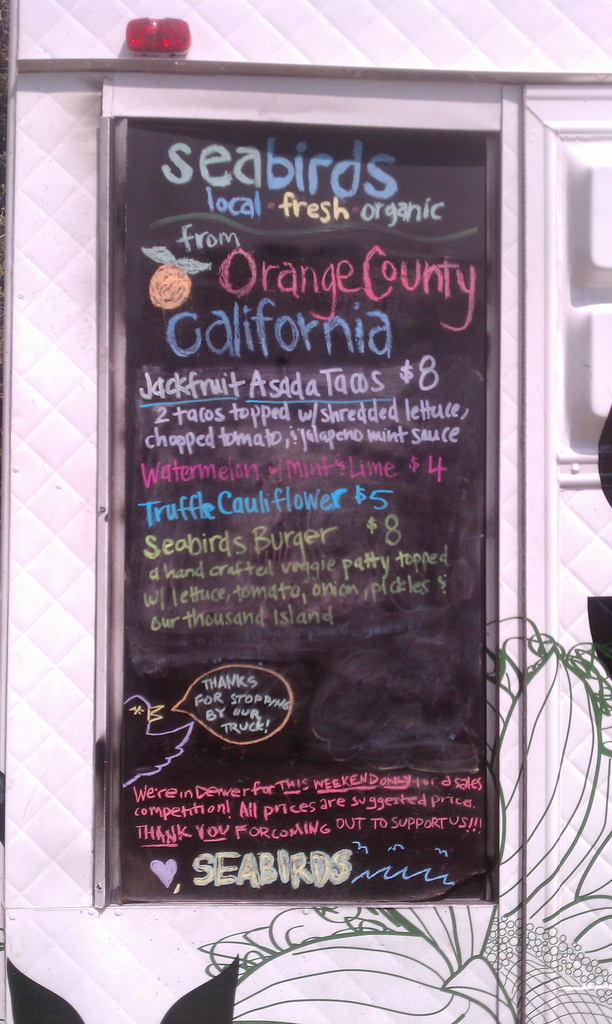 seabirds
local · fresh · organic
from
Orange County
California
Jackfruit Asada Tacos $8
2 tacos topped w/ shredded lettuce,
chopped tomato, & jalapeno mint sauce
Watermelon w/ Mint & Lime $4
Truffle Cauliflower $5
Seabirds Burger $8
a hand crafted veggie patty topped
w/ lettuce, tomato, onion, pickles &
our thousand Island
THANKS
FOR STOPPING
BY OUR
TRUCK!
We're in Denver for THIS WEEKEND ONLY for a sales
competition! All prices are suggested price.
THANK YOU FOR COMING OUT TO SUPPORT US!!!
, SEABIRDS